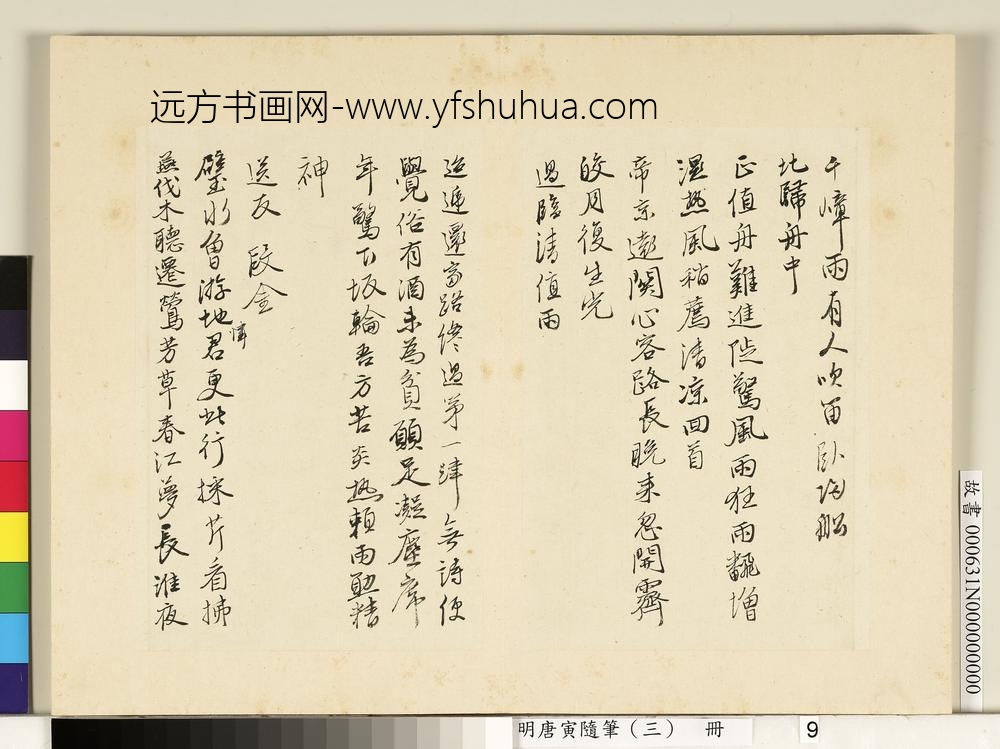 远方书画网-www.yfshuhua.com
千嶂雨有人吹笛卧江船
北歸舟中
正值舟難進陡驚風雨狂雨翻增
濕熱風稍薦清凉回首
帝京遠關心客路長晚来忽開霽
皎月復生光
過臨清值雨
迢遞還家路終過第一肆無詩便
覺俗有酒未為貧願足凝塵席
年驚下坂輪吾方苦炎热賴雨勵精
神
送友 段金
璧水曾游地君更此行採芹看拂
燕伐木聽遷鶯芳草春江夢長淮夜
故書 000631N000000000
明唐寅隨筆（三） 冊 9